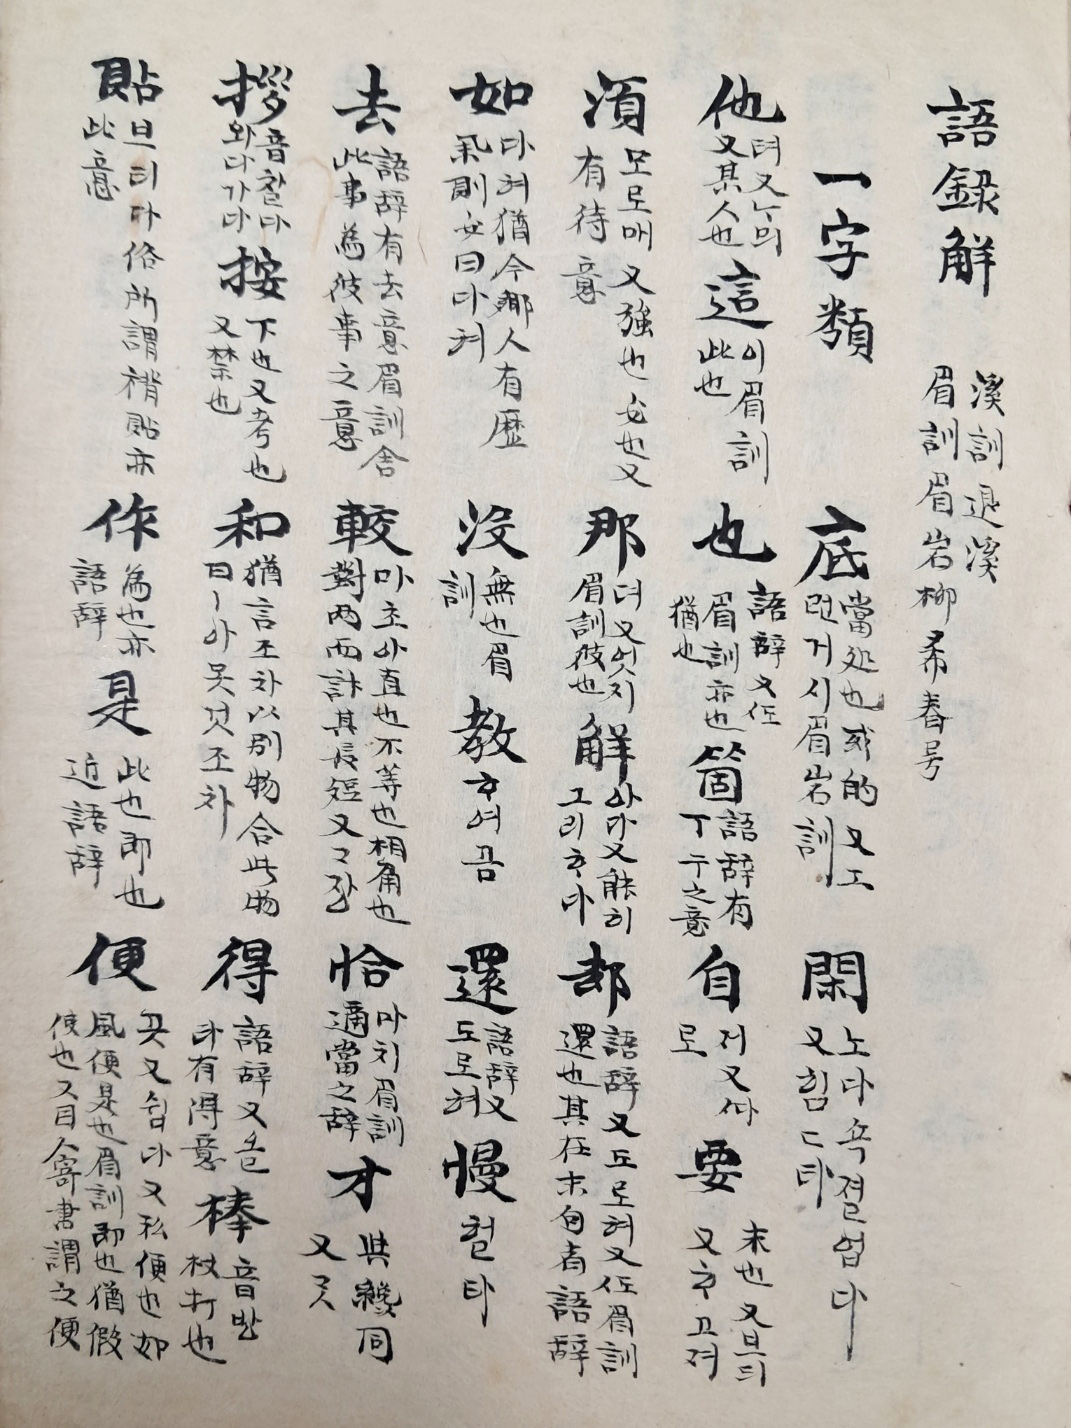 語錄解 溪訓退溪 眉訓眉岩柳希春号
一字類
底 當処也或的又工 런거시眉岩訓
閑 노다 쇽졀업다 又힘ㄷ타
他 뎌又ᄂᆞᄆᆡ 又某人也
這 이眉訓 此也
也 語辞又仨 眉訓亦也 猶也
箇 語辞有 丁宁之意
自 저又 로
要 求也又브듸 又ᄒᆞ고져
須 모로매又強也必也又 有待意
那 뎌又엇지 眉訓彼也
解 아다又能히 그리ᄒᆞ다
却 語辞又도로혀又仨眉訓 還也其在末句者語辞
如 다혀猶今鄕人有歷 某則必曰다혀
没 無也眉 訓
教 ᄒᆞ여곰
還 語辞又 도로혀
慢 헐타
去 語辞有去意眉訓舎 此事為彼事之意
較 마초아直也不等也相角也 對両而計其長短又ㄱ장
恰 마치眉訓 適當之辞
才 與纔同 又ᄀᆞᆺ
拶 音찰다 와다가다
按 下也又考也 又禁也
和 猶言조차以別物合此物 曰ㅣ아못것조차
得 語辞又올 타有得意
棒 音방 杖打也
貼 브티다俗所謂褙貼亦 此意
作 為也亦 語辞
是 此也即也 近語辞
便 곳又쉽다又私便也如 風便是也眉訓即也猶假 使也又因人寄書謂之便